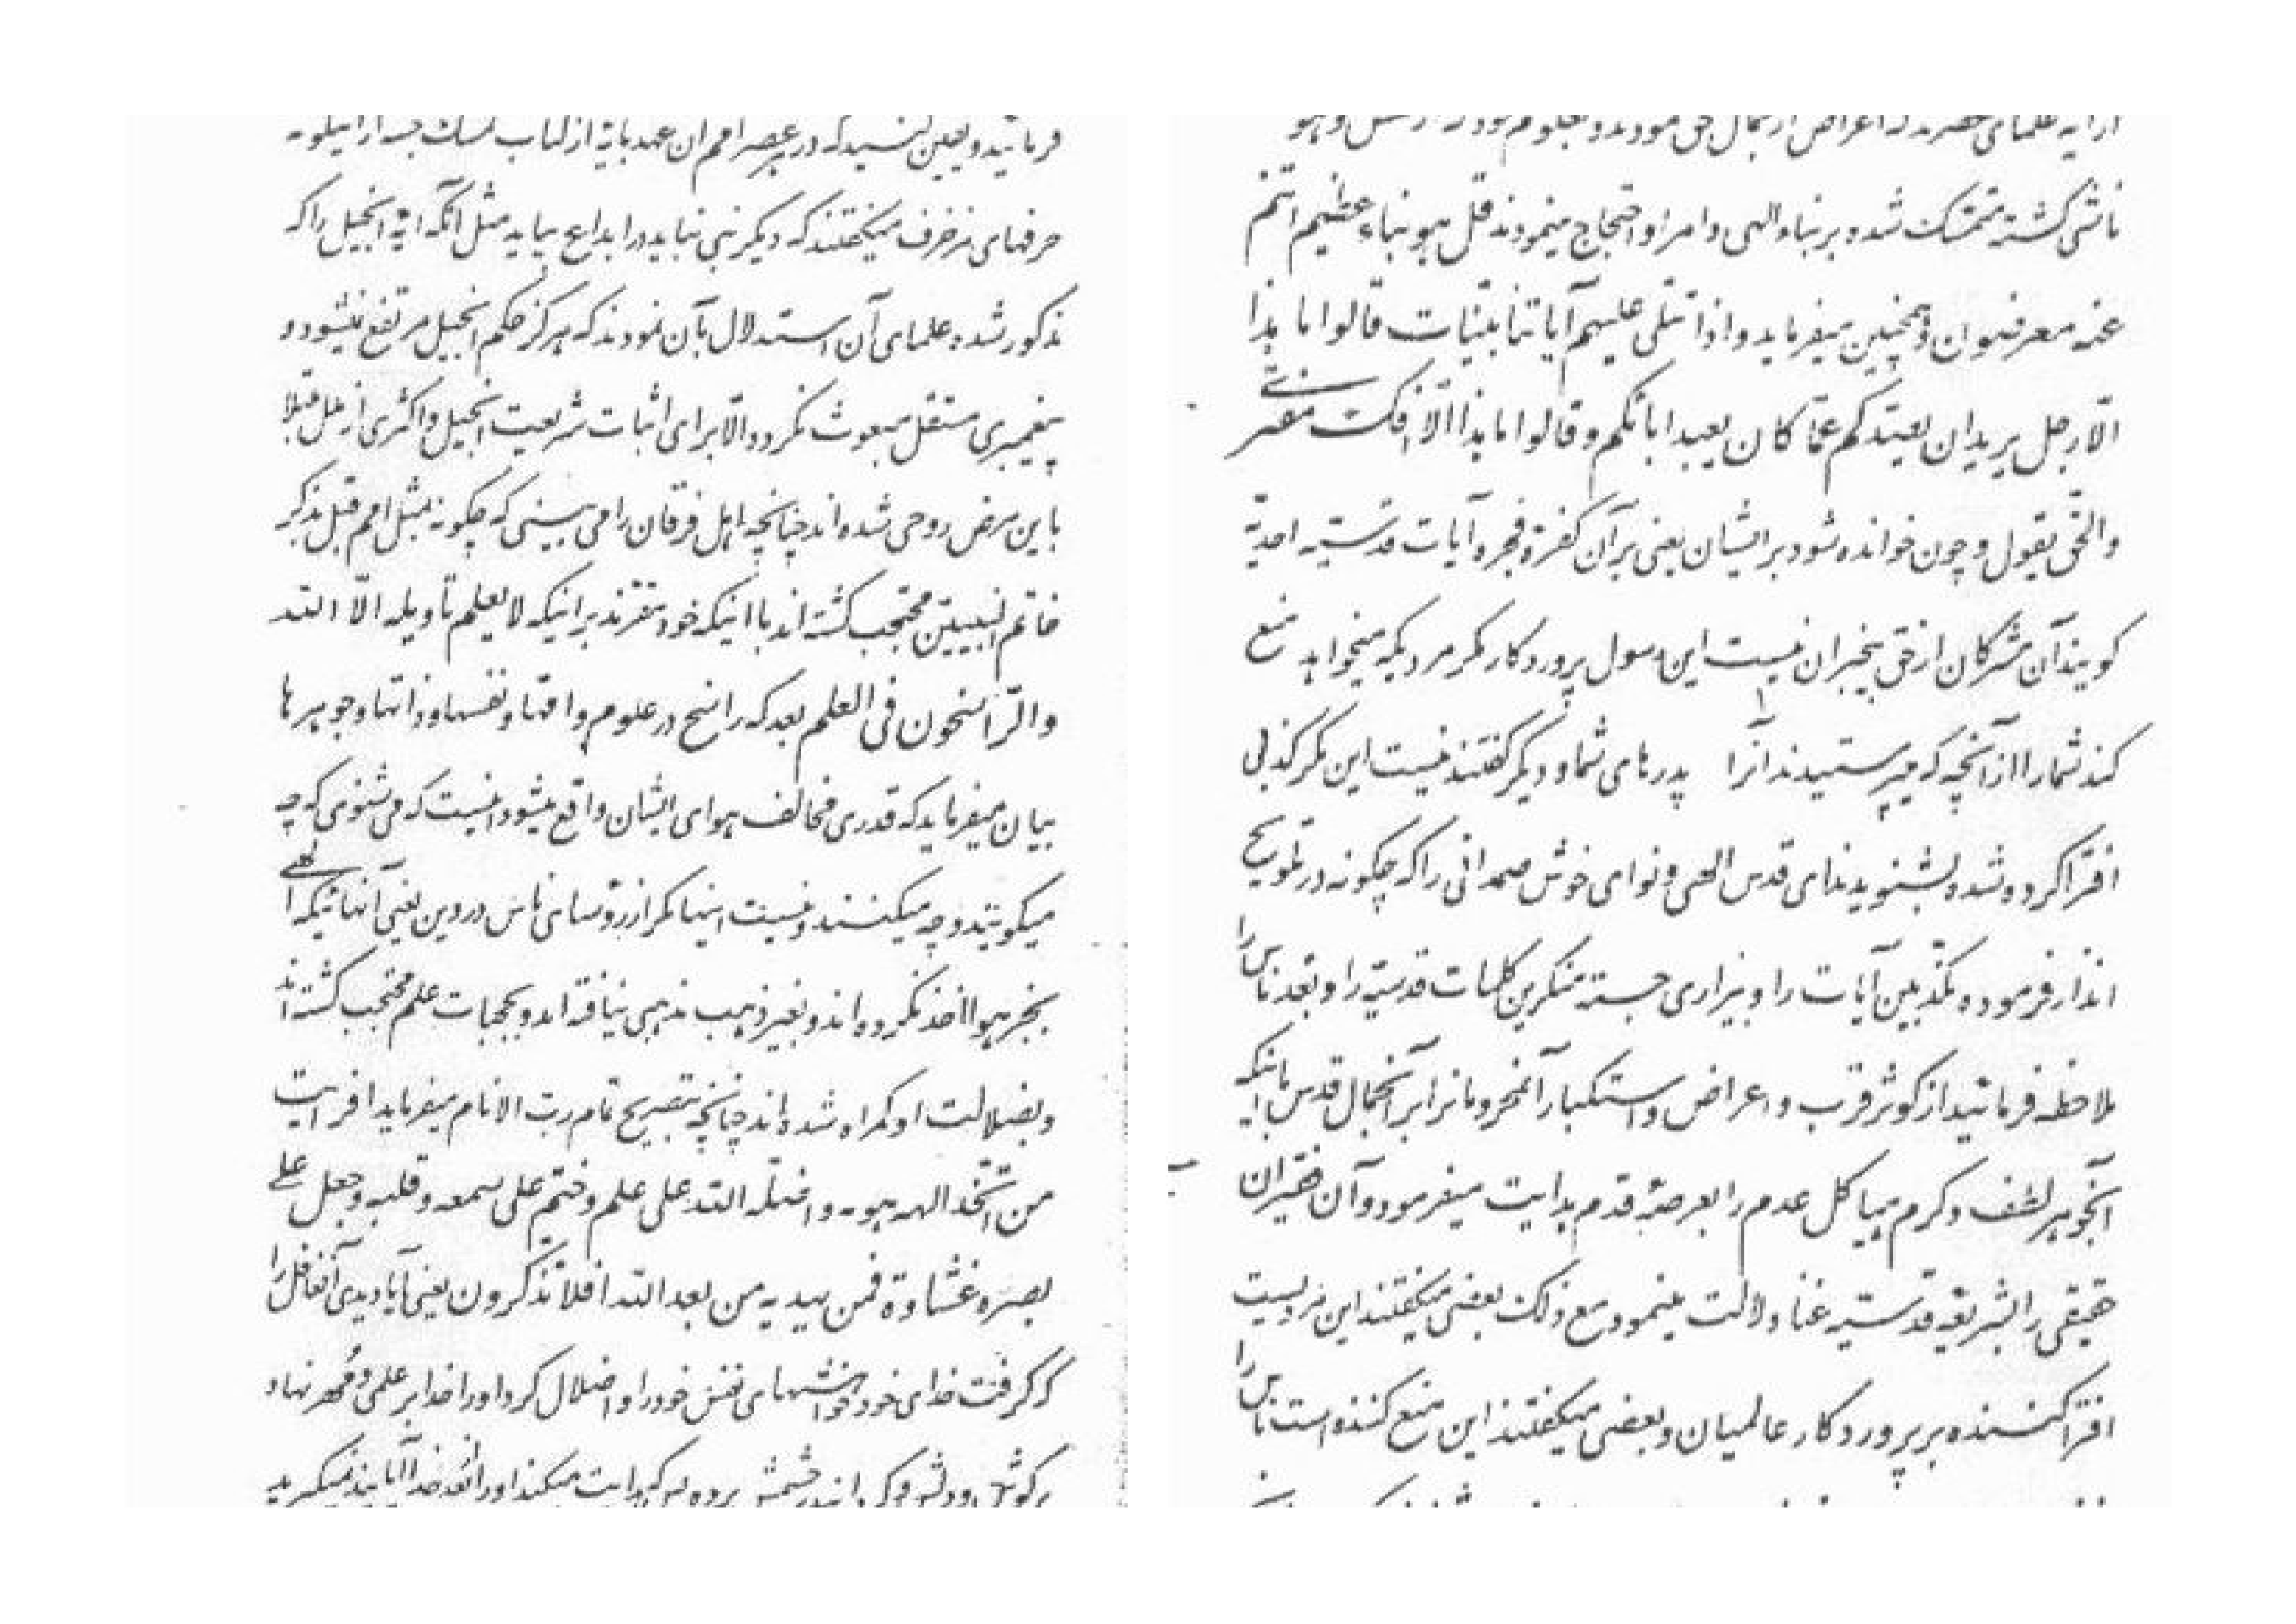 ناشی گشته متمسک شده بر نباء الهی و امر او احتجاج مینمودند قل هو نباء عظیم انتم
عنه معرضون و همچنین میفرماید و اذا تتلی علیهم آیاتنا بینات قالوا ما هذا
الّا رجل یرید ان یصدّکم عمّا کان یعبد ابائکم و قالوا ما هذا الّا افک مفتری
والحق یقول و چون خوانده شود بر ایشان یعنی بر آن کفره فجره آیات قدسیه احدیّه
گویند آن مشرکان از حق بیخبران نیست این رسول پروردگار مگر مردیکه میخواهد منع
کند شمارا از آنچه که میپرستیدند آنرا پدرهای شما و دیگر گفتند نیست این مگر کذبی
افترا کرده شده بشنوید ندای قدس الهی و نوای خوش صمدانی را که چگونه در تلویح
انذار فرموده مکذّبین آیات را و بیزاری جسته منکرین کلمات قدسیّه را و بُعد ناس را
ملاحظه فرمائید از کوثر قرب و اعراض و استکبار آنمحرومانرا بر آنجمال قدس با اینکه
آنجوهر لطف و کرم هیاکل عدم را بعرصهٔ قدم هدایت میفرمود و آن فقیران
حقیقی را بشریعهٔ قدسیّه غنا دلالت مینمود مع ذلک بعضی میگفتند این مردیست
افترا کننده بر پروردگار عالمیان و بعضی میگفتند این منع کننده است ناس را
فرمائید و یقین کنید که در هر عصر امم آن عهد بآیهٔ از کتاب تمسک جسته از اینگونه
حرفهای مزخرف میگفتند که دیگر نبی نباید در ابداع بیاید مثل آنکه ایهٔ انجیل را که
ذکور شده علمای آن استدلال بآن نمودند که هرگز حکم انجیل مرتفع نمیشود و
پیغمبری مستقل مبعوث نگردد الّا برای اثبات شریعت انجیل و اکثری از ملل مبتلا
باین مرض روحی شده اند چنانچه اهل فرقان را می بینی که چگونه بمثل امم قبل بذکر
خاتم النبیین محتجب گشته اند با اینکه خود مقرّند بر اینکه لا یعلم تاویله الّا الله
و الرّاسخون فی العلم بعد که راسخ در علوم و امّها و نفسها و ذاتها و جوهرها
بیان میفرماید که قدری مخالف هوای ایشان واقع میشود اینست که می شنوی که چه
میگویند و چه میکنند و نیست اینها مگر از رؤسای ناس در دین یعنی آنهائیکه الهی
بجز هوا اخذ نکرده اند و بغیر ذهب مذهبی نیافته اند و بحجبات علم محتجب گشته اند
و بضلالت او گمراه شده اند چنانچه بتصریح تمام رب الانام میفرماید افرایت
من اتّخذ الهه هویه و اضلّه الله علی علم و ختم علی سمعه و قلبه و جعل علی
بصره غشاوة فمن یهدیه من بعد الله افلا تذکرون یعنی آیا دیدی آنغافل را
که گرفت خدای خود خواهشهای نفس خود را و اضلال کرد او را خدا بر علمی و مُهر نهاد